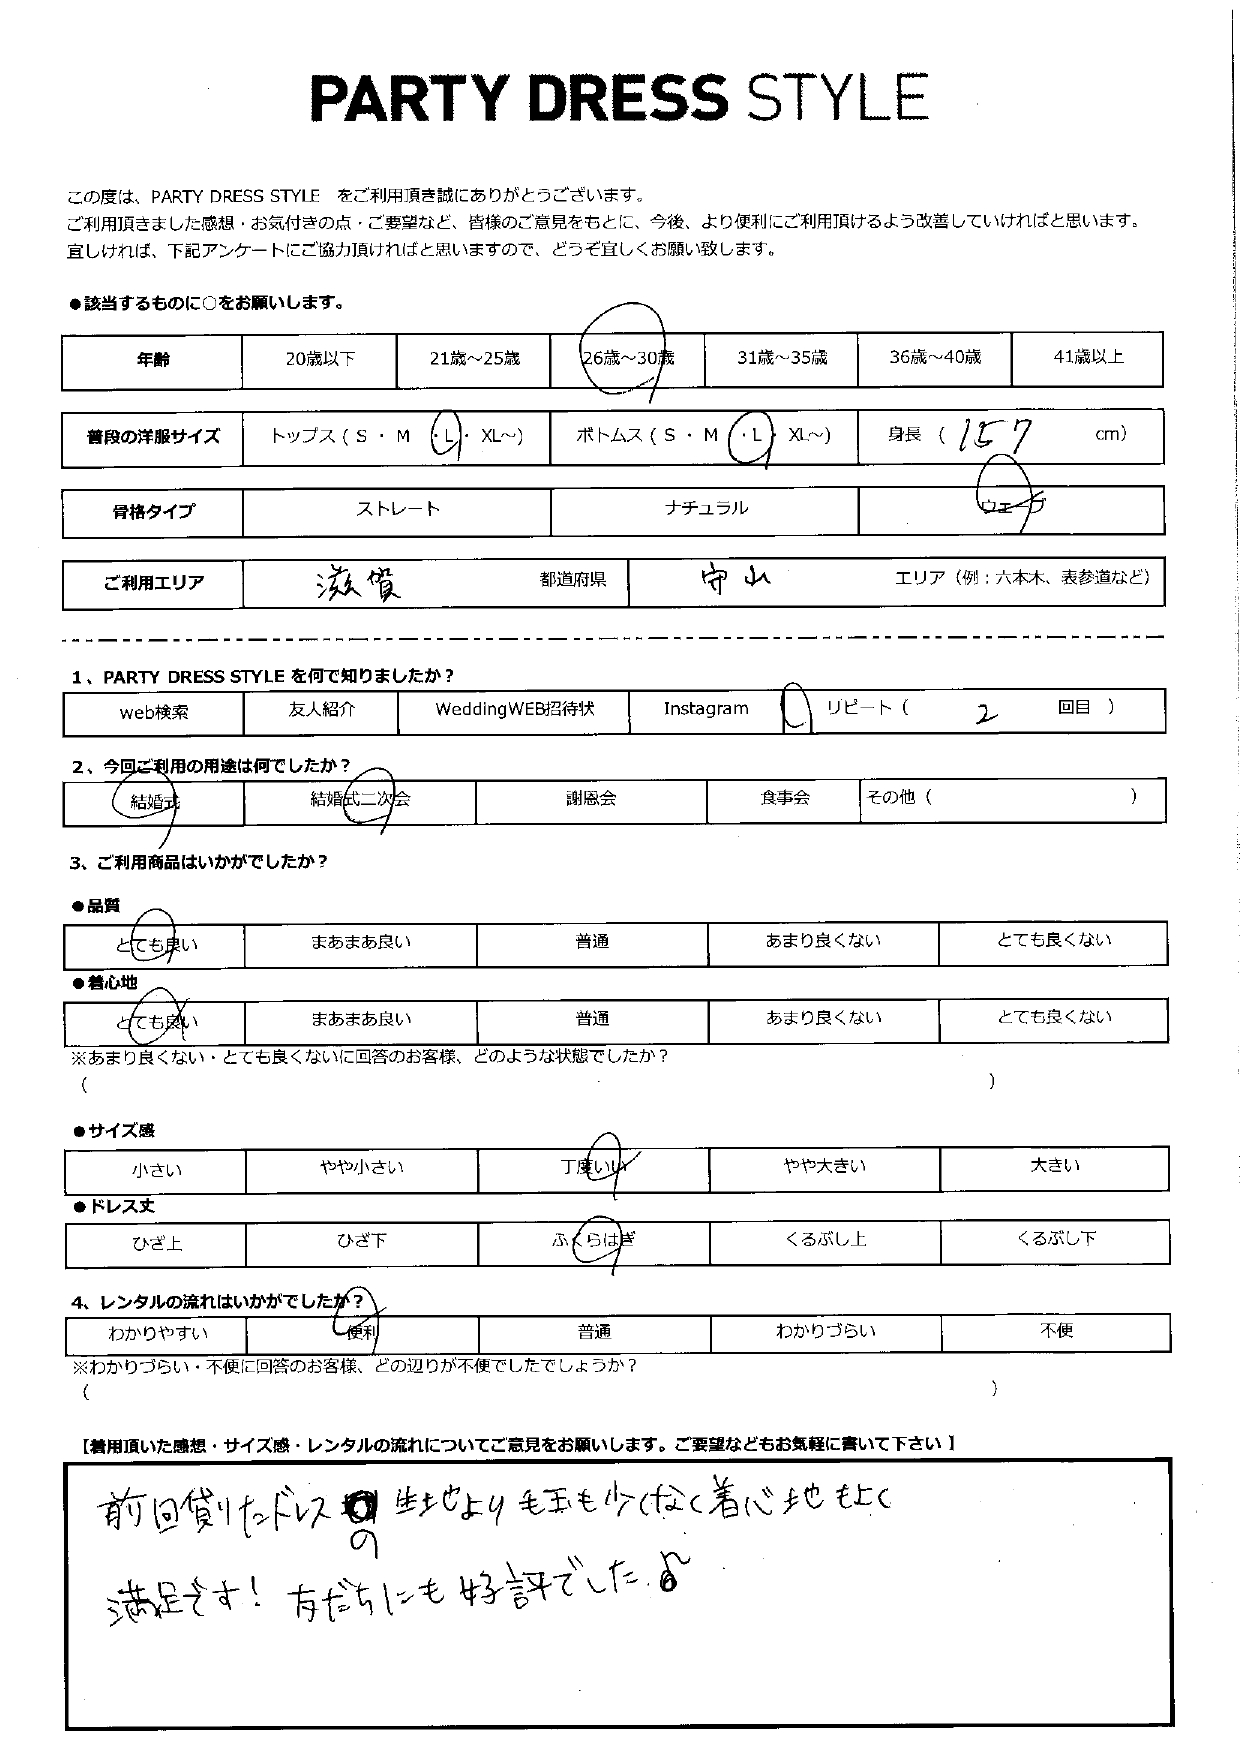 PARTY DRESS STYLE
この度は、PARTY DRESS STYLE をご利用頂き誠にありがとうございます。
ご利用頂きました感想・お気付きの点・ご要望など、皆様のご意見をもとに、今後、より便利にご利用頂けるよう改善していければと思います。
宜しければ、下記アンケートにご協力頂ければと思いますので、どうぞ宜しくお願い致します。
●該当するものに○をお願いします。
年齢 20歳以下 21歳～25歳 26歳～30歳 31歳～35歳 36歳～40歳 41歳以上
普段の洋服サイズ トップス（ S ・ M ・L・ XL～） ボトムス（ S ・ M ・L・ XL～） 身長 （ 157 cm）
骨格タイプ ストレート ナチュラル ウェーブ
ご利用エリア 滋賀 都道府県 守山 エリア（例：六本木、表参道など）
1、PARTY DRESS STYLE を何で知りましたか？
web検索 友人紹介 WeddingWEB招待状 Instagram リピート（ 2 回目 ）
2、今回ご利用の用途は何でしたか？
結婚式 結婚式二次会 謝恩会 食事会 その他（ ）
3、ご利用商品はいかがでしたか？
●品質
とても良い まあまあ良い 普通 あまり良くない とても良くない
●着心地
とても良い まあまあ良い 普通 あまり良くない とても良くない
※あまり良くない・とても良くないに回答のお客様、どのような状態でしたか？
（ ）
●サイズ感
小さい やや小さい 丁度いい やや大きい 大きい
●ドレス丈
ひざ上 ひざ下 ふくらはぎ くるぶし上 くるぶし下
4、レンタルの流れはいかがでしたか？
わかりやすい 便利 普通 わかりづらい 不便
※わかりづらい・不便に回答のお客様、どの辺りが不便でしたでしょうか？
（ ）
【着用頂いた感想・サイズ感・レンタルの流れについてご意見をお願いします。ご要望などもお気軽に書いて下さい 】
前回貸りたドレスの 生地より毛玉も少くなく着心地もよく
満足です！ 友だちにも好評でした♪